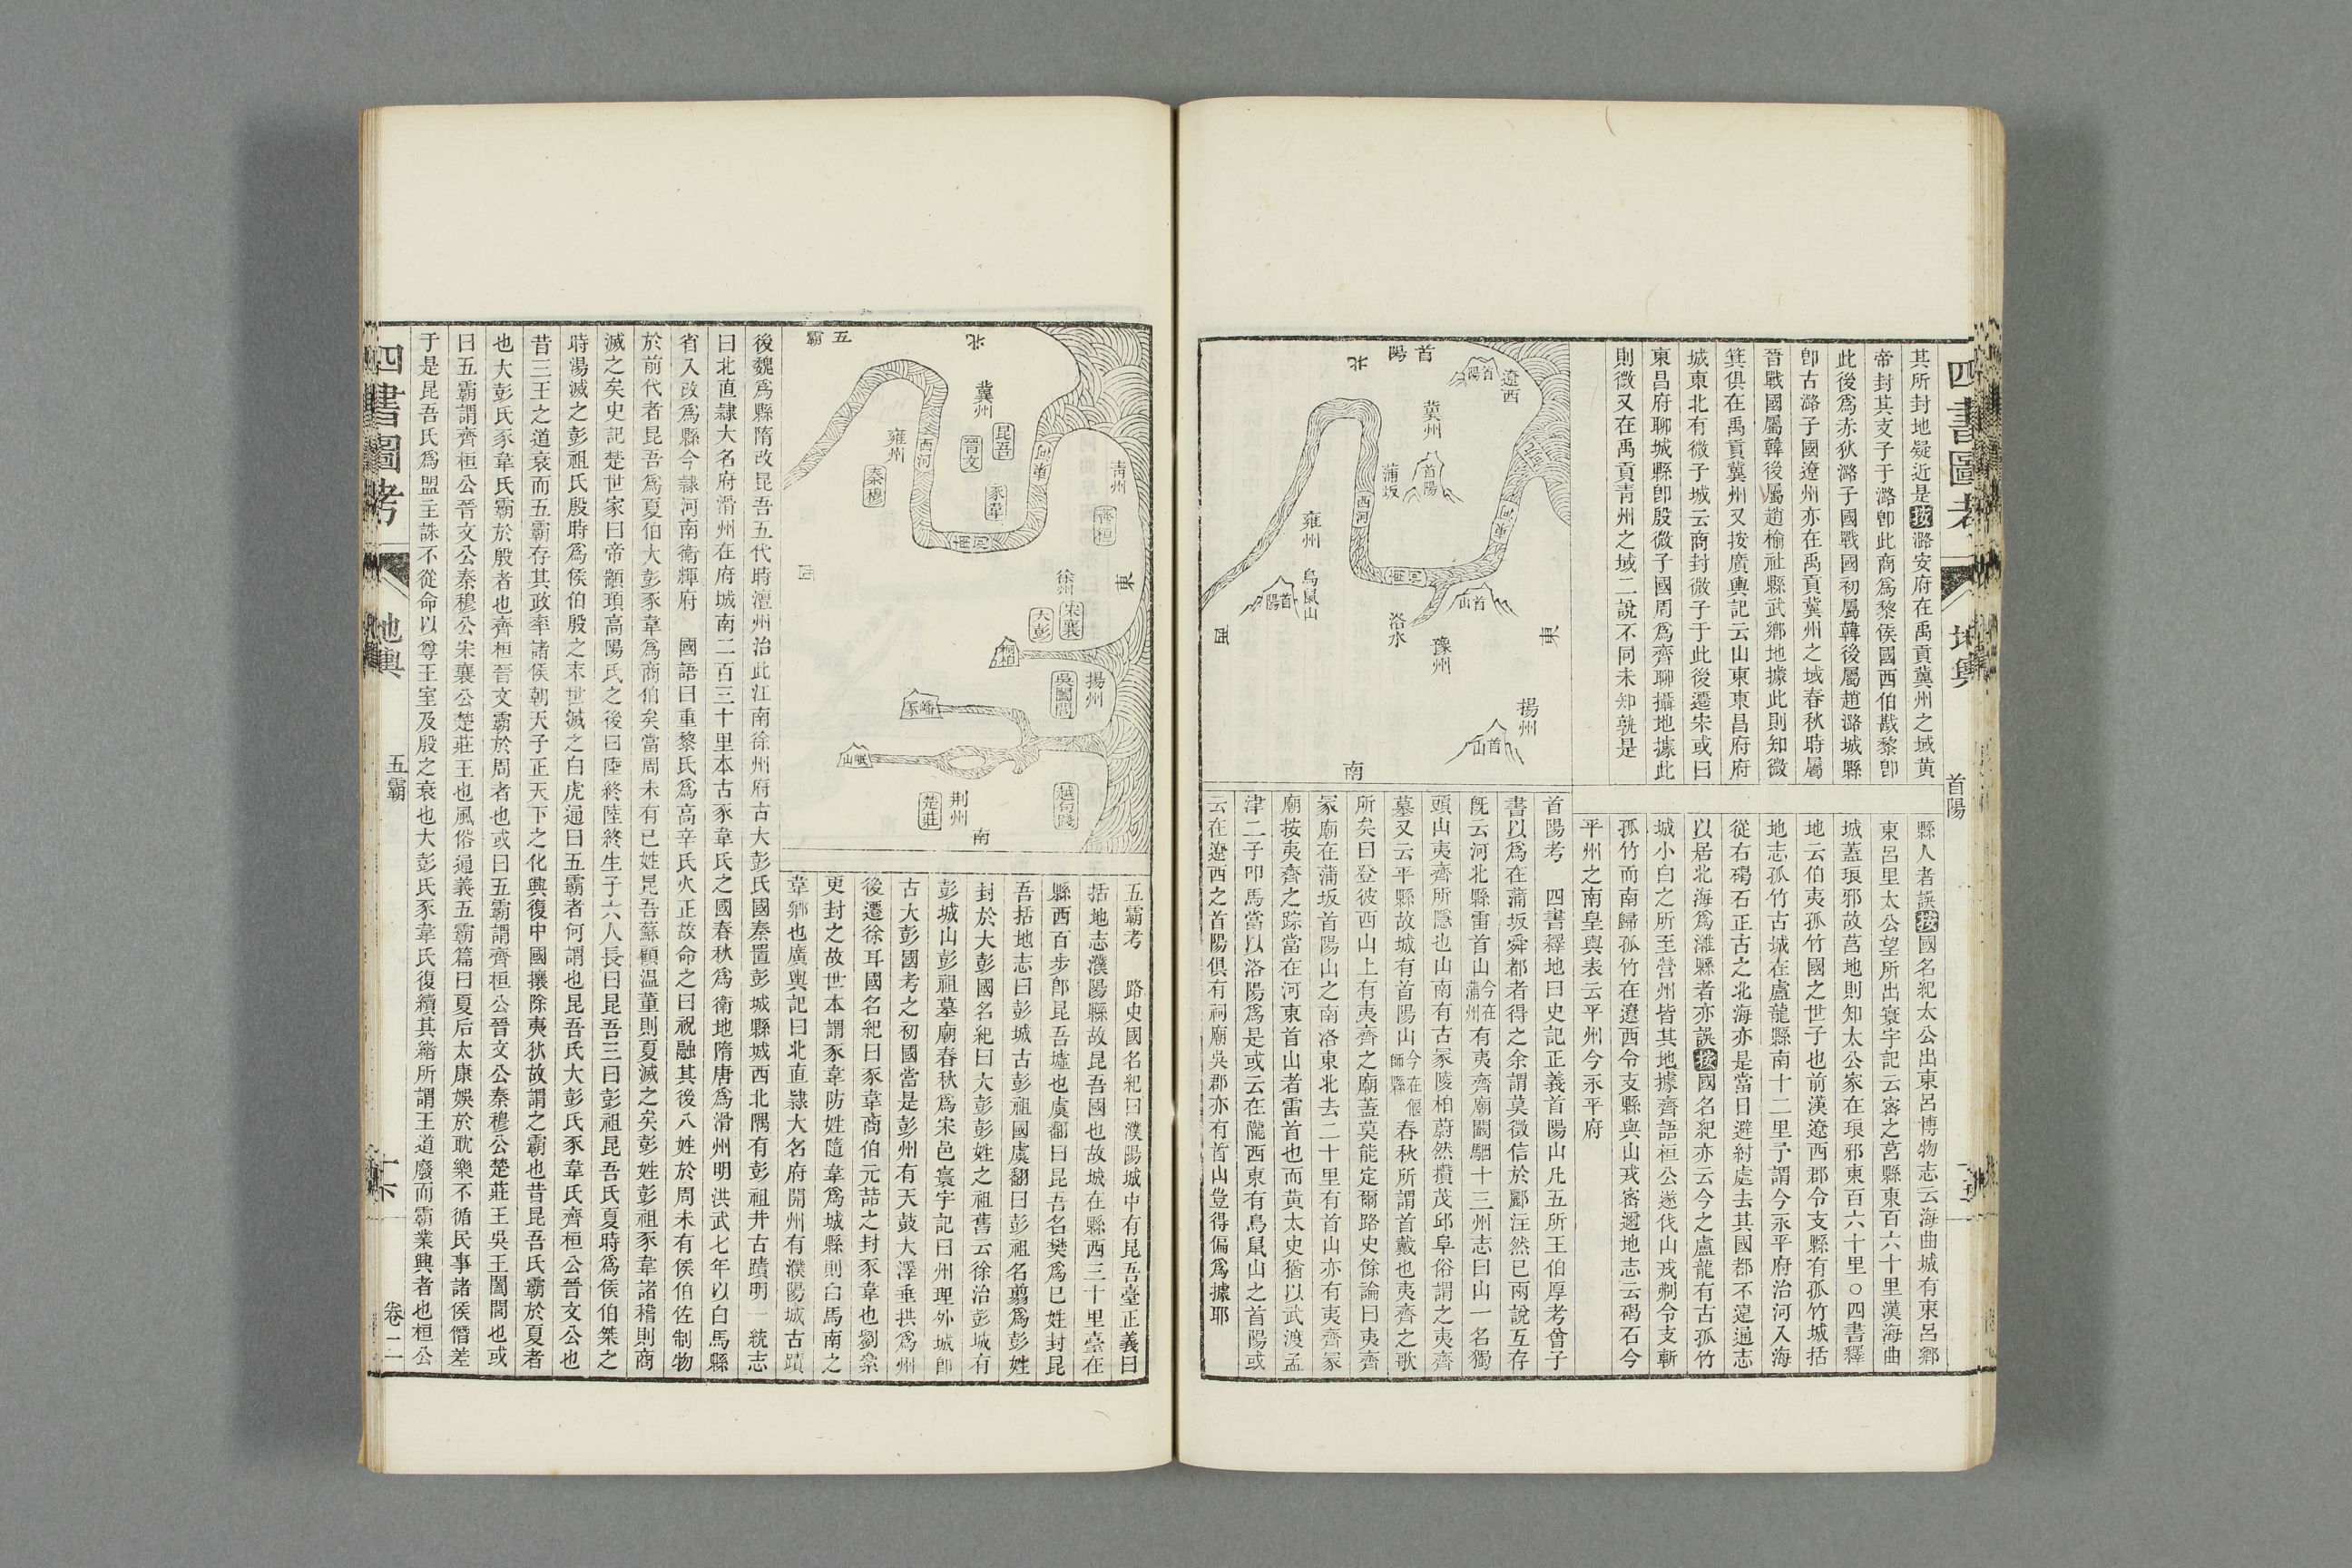 四書圖考
地輿
首陽
其所封地疑近是按潞安府在禹貢冀州之域黄
帝封其支子于潞卽此商爲黎侯國西伯戡黎卽
此後爲赤狄潞子國戰國初屬韓後屬趙潞城縣
卽古潞子國遼州亦在禹貢冀州之域春秋時屬
晉戰國屬韓後屬趙榆社縣武鄉地據此則知微
箕俱在禹貢冀州又按廣輿記云山東東昌府府
城東北有微子城云商封微子于此後遷宋或曰
東昌府聊城縣卽殷微子國周爲齊聊攝地據此
則微又在禹貢靑州之域二說不同未知孰是
首陽
北
遼西
首陽
冀州
首陽
蒲坂
西河
東河
南河
雍州
鳥鼠山
首陽
首山
洛水
豫州
東
西
揚州
首山
南
縣人者誤按國名紀太公出東呂博物志云海曲城有東呂鄉
東呂里太公望所出寰宇記云密之莒縣東百六十里漢海曲
城蓋琅邪故莒地則知太公家在琅邪東百六十里○四書釋
地云伯夷孤竹國之世子也前漢遼西郡令支縣有孤竹城括
地志孤竹古城在盧龍縣南十二里予謂今永平府治河入海
從右碣石正古之北海亦是當日避紂處去其國都不遠通志
以居北海爲濰縣者亦誤按國名紀亦云今之盧龍有古孤竹
城小白之所至營州皆其地據齊語桓公遂伐山戎刜令支斬
孤竹而南歸孤竹在遼西令支縣與山戎密邇地志云碣石今
平州之南皇輿表云平州今永平府
首陽考　四書釋地曰史記正義首陽山凡五所王伯厚考曾子
書以爲在蒲坂舜都者得之余謂莫徵信於酈注然已兩說互存
旣云河北縣雷首山今在蒲州有夷齊廟闞駰十三州志曰山一名獨
頭山夷齊所隱也山南有古冢陵柏蔚然攢茂邱阜俗謂之夷齊
墓又云平縣故城有首陽山今在偃師縣春秋所謂首戴也夷齊之歌
所矣曰登彼西山上有夷齊之廟蓋莫能定爾路史餘論曰夷齊
冢廟在蒲坂首陽山之南洛東北去二十里有首山亦有夷齊冢
廟按夷齊之踪當在河東首山者雷首也而黄太史猶以武渡孟
津二子叩馬當以洛陽爲是或云在隴西東有鳥鼠山之首陽或
云在遼西之首陽俱有祠廟吳郡亦有首山豈得偏爲據耶
五霸
北
冀州
昆吾
晉文
豕韋
雍州
秦穆
西河
東河
南河
靑州
齊桓
東
西
徐州
宋襄
大彭
桐柏
揚州
吳闔閭
嶓冢
岷山
荆州
楚莊
越句踐
南
五霸考　路史國名紀曰濮陽城中有昆吾臺正義曰
括地志濮陽縣故昆吾國也故城在縣西三十里臺在
縣西百步卽昆吾墟也虞翻曰昆吾名樊爲巳姓封昆
吾括地志曰彭城古彭祖國虞翻曰彭祖名翦爲彭姓
封於大彭國名紀曰大彭彭姓之祖舊云徐治彭城有
彭城山彭祖墓廟春秋爲宋邑寰宇記曰州理外城卽
古大彭國考之初國當是彭州有天鼓大澤垂拱爲州
後遷徐耳國名紀曰豕韋商伯元喆之封豕韋也劉絫
更封之故世本謂豕韋防姓隨韋爲城縣則白馬南之
韋鄉也廣輿記曰北直隸大名府開州有濮陽城古蹟
後魏爲縣隋改昆吾五代時澶州治此江南徐州府古大彭氏國秦置彭城縣城西北隅有彭祖井古蹟明一統志
曰北直隸大名府滑州在府城南二百三十里本古豕韋氏之國春秋爲衛地隋唐爲滑州明洪武七年以白馬縣
省入改爲縣今隸河南衛輝府　國語曰重黎氏爲高辛氏火正故命之曰祝融其後八姓於周未有侯伯佐制物
於前代者昆吾爲夏伯大彭豕韋爲商伯矣當周未有已姓昆吾蘇顧温董則夏滅之矣彭姓彭祖豕韋諸稽則商
滅之矣史記楚世家曰帝顓頊高陽氏之後曰陸終陸終生子六人長曰昆吾三曰彭祖昆吾氏夏時爲侯伯桀之
時湯滅之彭祖氏殷時爲侯伯殷之末世滅之白虎通曰五霸者何謂也昆吾氏大彭氏豕韋氏齊桓公晉文公也
昔三王之道衰而五霸存其政率諸侯朝天子正天下之化興復中國攘除夷狄故謂之霸也昔昆吾氏霸於夏者
也大彭氏豕韋氏霸於殷者也齊桓晉文霸於周者也或曰五霸謂齊桓公晉文公秦穆公楚莊王吳王闔閭也或
曰五霸謂齊桓公晉文公秦穆公宋襄公楚莊王也風俗通義五霸篇曰夏后太康娛於耽樂不循民事諸侯僭差
于是昆吾氏爲盟主誅不從命以尊王室及殷之衰也大彭氏豕韋氏復續其緒所謂王道廢而霸業興者也桓公
四書圖考
地輿
五霸
卷二